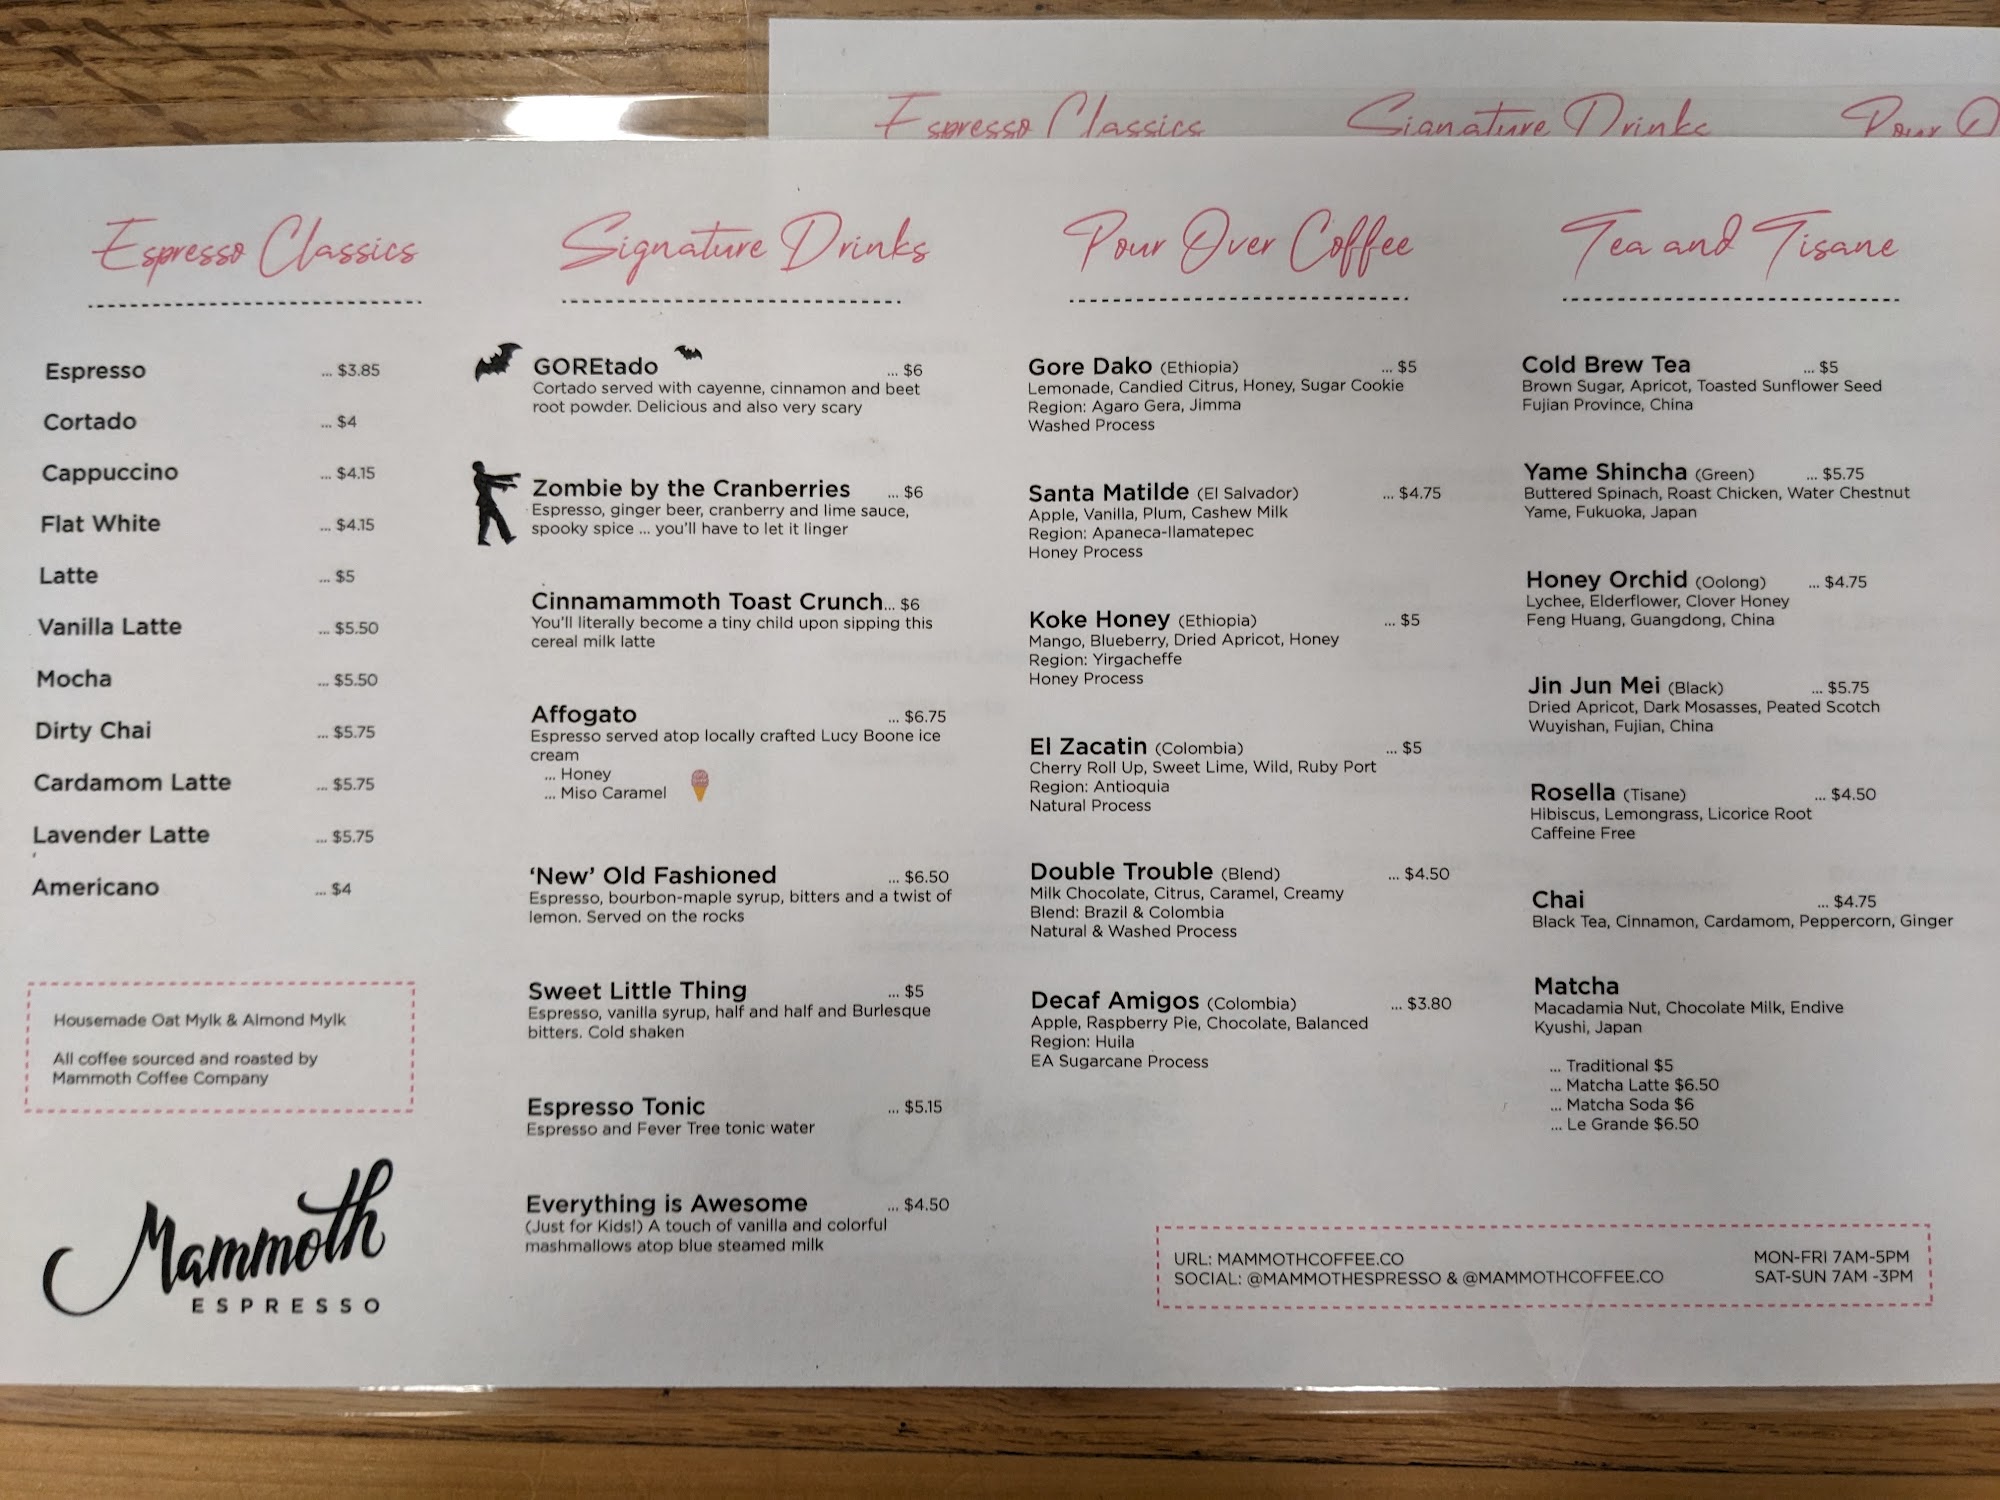 Espresso Classics
Signature Drinks
Espresso Classics
Espresso ... $3.85
Cortado ... $4
Cappuccino ... $4.15
Flat White ... $4.15
Latte ... $5
Vanilla Latte ... $5.50
Mocha ... $5.50
Dirty Chai ... $5.75
Cardamom Latte ... $5.75
Lavender Latte ... $5.75
Americano ... $4
Housemade Oat Mylk & Almond Mylk
All coffee sourced and roasted by
Mammoth Coffee Company
Mammoth
ESPRESSO
Signature Drinks
GOREtado ... $6
Cortado served with cayenne, cinnamon and beet
root powder. Delicious and also very scary
Zombie by the Cranberries ... $6
Espresso, ginger beer, cranberry and lime sauce,
spooky spice ... you'll have to let it linger
Cinnamammoth Toast Crunch... $6
You'll literally become a tiny child upon sipping this
cereal milk latte
Affogato ... $6.75
Espresso served atop locally crafted Lucy Boone ice
cream
... Honey
... Miso Caramel
‘New’ Old Fashioned ... $6.50
Espresso, bourbon-maple syrup, bitters and a twist of
lemon. Served on the rocks
Sweet Little Thing ... $5
Espresso, vanilla syrup, half and half and Burlesque
bitters. Cold shaken
Espresso Tonic ... $5.15
Espresso and Fever Tree tonic water
Everything is Awesome ... $4.50
(Just for Kids!) A touch of vanilla and colorful
mashmallows atop blue steamed milk
Pour Over Coffee
Gore Dako (Ethiopia) ... $5
Lemonade, Candied Citrus, Honey, Sugar Cookie
Region: Agaro Gera, Jimma
Washed Process
Santa Matilde (El Salvador) ... $4.75
Apple, Vanilla, Plum, Cashew Milk
Region: Apaneca-llamatepec
Honey Process
Koke Honey (Ethiopia) ... $5
Mango, Blueberry, Dried Apricot, Honey
Region: Yirgacheffe
Honey Process
El Zacatin (Colombia) ... $5
Cherry Roll Up, Sweet Lime, Wild, Ruby Port
Region: Antioquia
Natural Process
Double Trouble (Blend) ... $4.50
Milk Chocolate, Citrus, Caramel, Creamy
Blend: Brazil & Colombia
Natural & Washed Process
Decaf Amigos (Colombia) ... $3.80
Apple, Raspberry Pie, Chocolate, Balanced
Region: Huila
EA Sugarcane Process
Tea and Tisane
Cold Brew Tea ... $5
Brown Sugar, Apricot, Toasted Sunflower Seed
Fujian Province, China
Yame Shincha (Green) ... $5.75
Buttered Spinach, Roast Chicken, Water Chestnut
Yame, Fukuoka, Japan
Honey Orchid (Oolong) ... $4.75
Lychee, Elderflower, Clover Honey
Feng Huang, Guangdong, China
Jin Jun Mei (Black) ... $5.75
Dried Apricot, Dark Mosasses, Peated Scotch
Wuyishan, Fujian, China
Rosella (Tisane) ... $4.50
Hibiscus, Lemongrass, Licorice Root
Caffeine Free
Chai ... $4.75
Black Tea, Cinnamon, Cardamom, Peppercorn, Ginger
Matcha
Macadamia Nut, Chocolate Milk, Endive
Kyushi, Japan
... Traditional $5
... Matcha Latte $6.50
... Matcha Soda $6
... Le Grande $6.50
URL: MAMMOTHCOFFEE.CO
SOCIAL: @MAMMOTHESPRESSO & @MAMMOTHCOFFEE.CO
MON-FRI 7AM-5PM
SAT-SUN 7AM -3PM